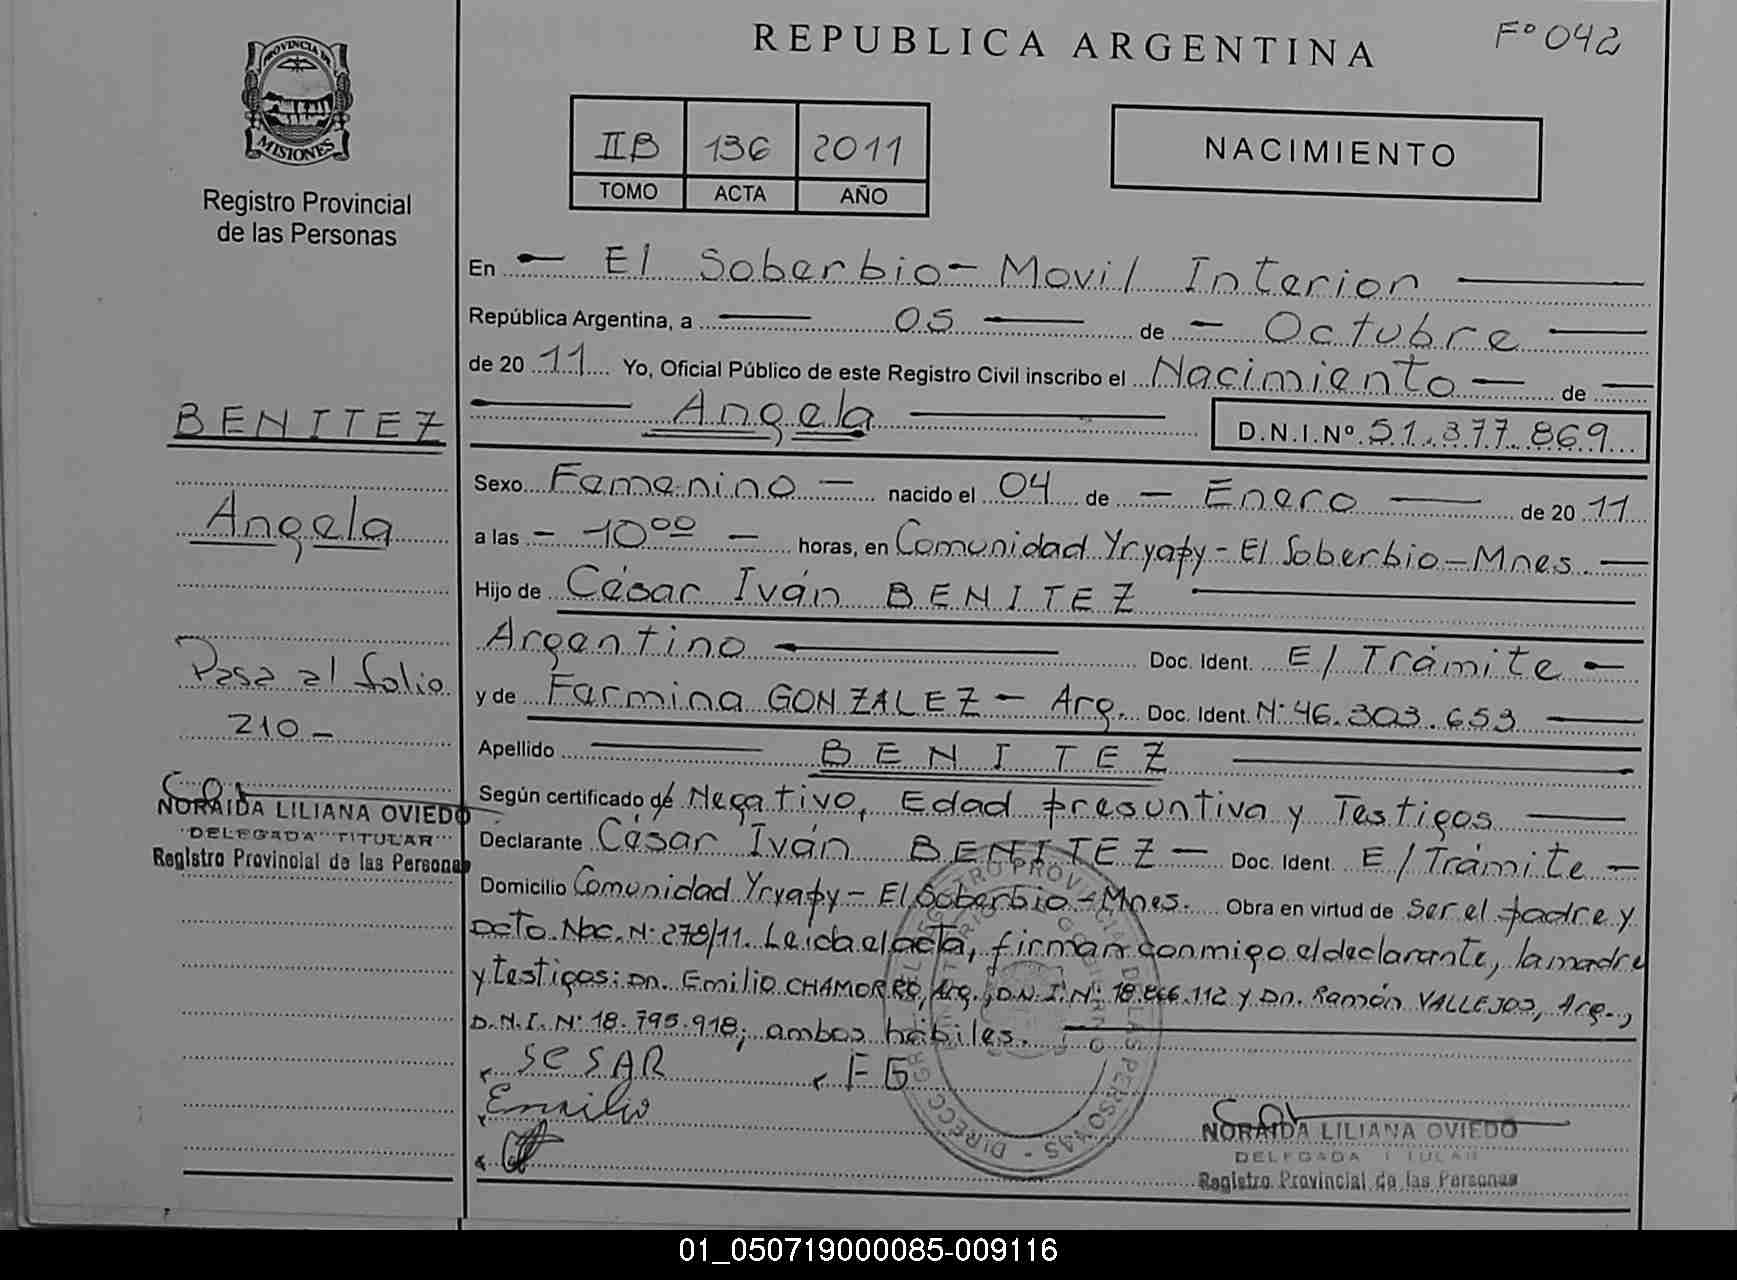 REPUBLICA ARGENTINA
Fº 042
PROVINCIA DE
MISIONES
Registro Provincial
de las Personas
IIB 136 2011
TOMO ACTA AÑO
NACIMIENTO
En El Soberbio - Movil Interior
República Argentina, a 05 de Octubre
de 20 11 Yo, Oficial Público de este Registro Civil inscribo el Nacimiento de
Angela D.N.I.Nº 51.377.869
BENITEZ
Angela
Sexo Femenino nacido el 04 de Enero de 20 11
a las 10 00 horas, en Comunidad Yryapy - El Soberbio - Mnes.
Hijo de César Iván BENITEZ
Argentino Doc. Ident. E/Trámite
y de Farmina GONZALEZ - Arg. Doc. Ident. Nº 46.303.653
Apellido BENITEZ
Según certificado de Negativo, Edad presuntiva y Testigos
Declarante César Iván BENITEZ - Doc. Ident. E/Trámite
Domicilio Comunidad Yryapy - El Soberbio - Mnes. Obra en virtud de ser el padre y
Dcto. Nac. Nº 278/11. Leída el acta, firman conmigo el declarante, la madre
y testigos: Dn. Emilio CHAMORRO, Arg., D.N.I. Nº 18.866.112 y Dn. Ramón VALLEJOS, Arg.,
D.N.I. Nº 18.795.918, ambos hábiles.
SESAR FG
Emilio
Pasa al folio
210 -
NORAIDA LILIANA OVIEDO
DELEGADA TITULAR
Registro Provincial de las Personas
NORAIDA LILIANA OVIEDO
DELEGADA TITULAR
Registro Provincial de las Personas
01_050719000085-009116